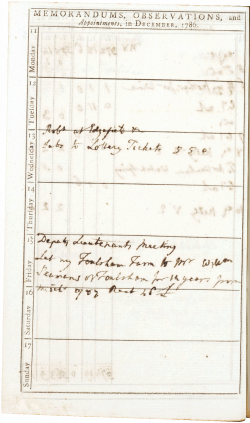 MEMORANDUMS, OBSERVATIONS, and
Appointments, in DECEMBER, 1786.
11 Monday
12 Tuesday
13 Wednesday
Robt at
Subs to Lottery Tickets 5 5 0
14 Thursday
15 Friday
Deputy Lieutenants Meeting
Let my Foulsham Farm to Mr Wm
of Foulsham for 14 years from
1787 Rent
16 Saturday
17 Sunday